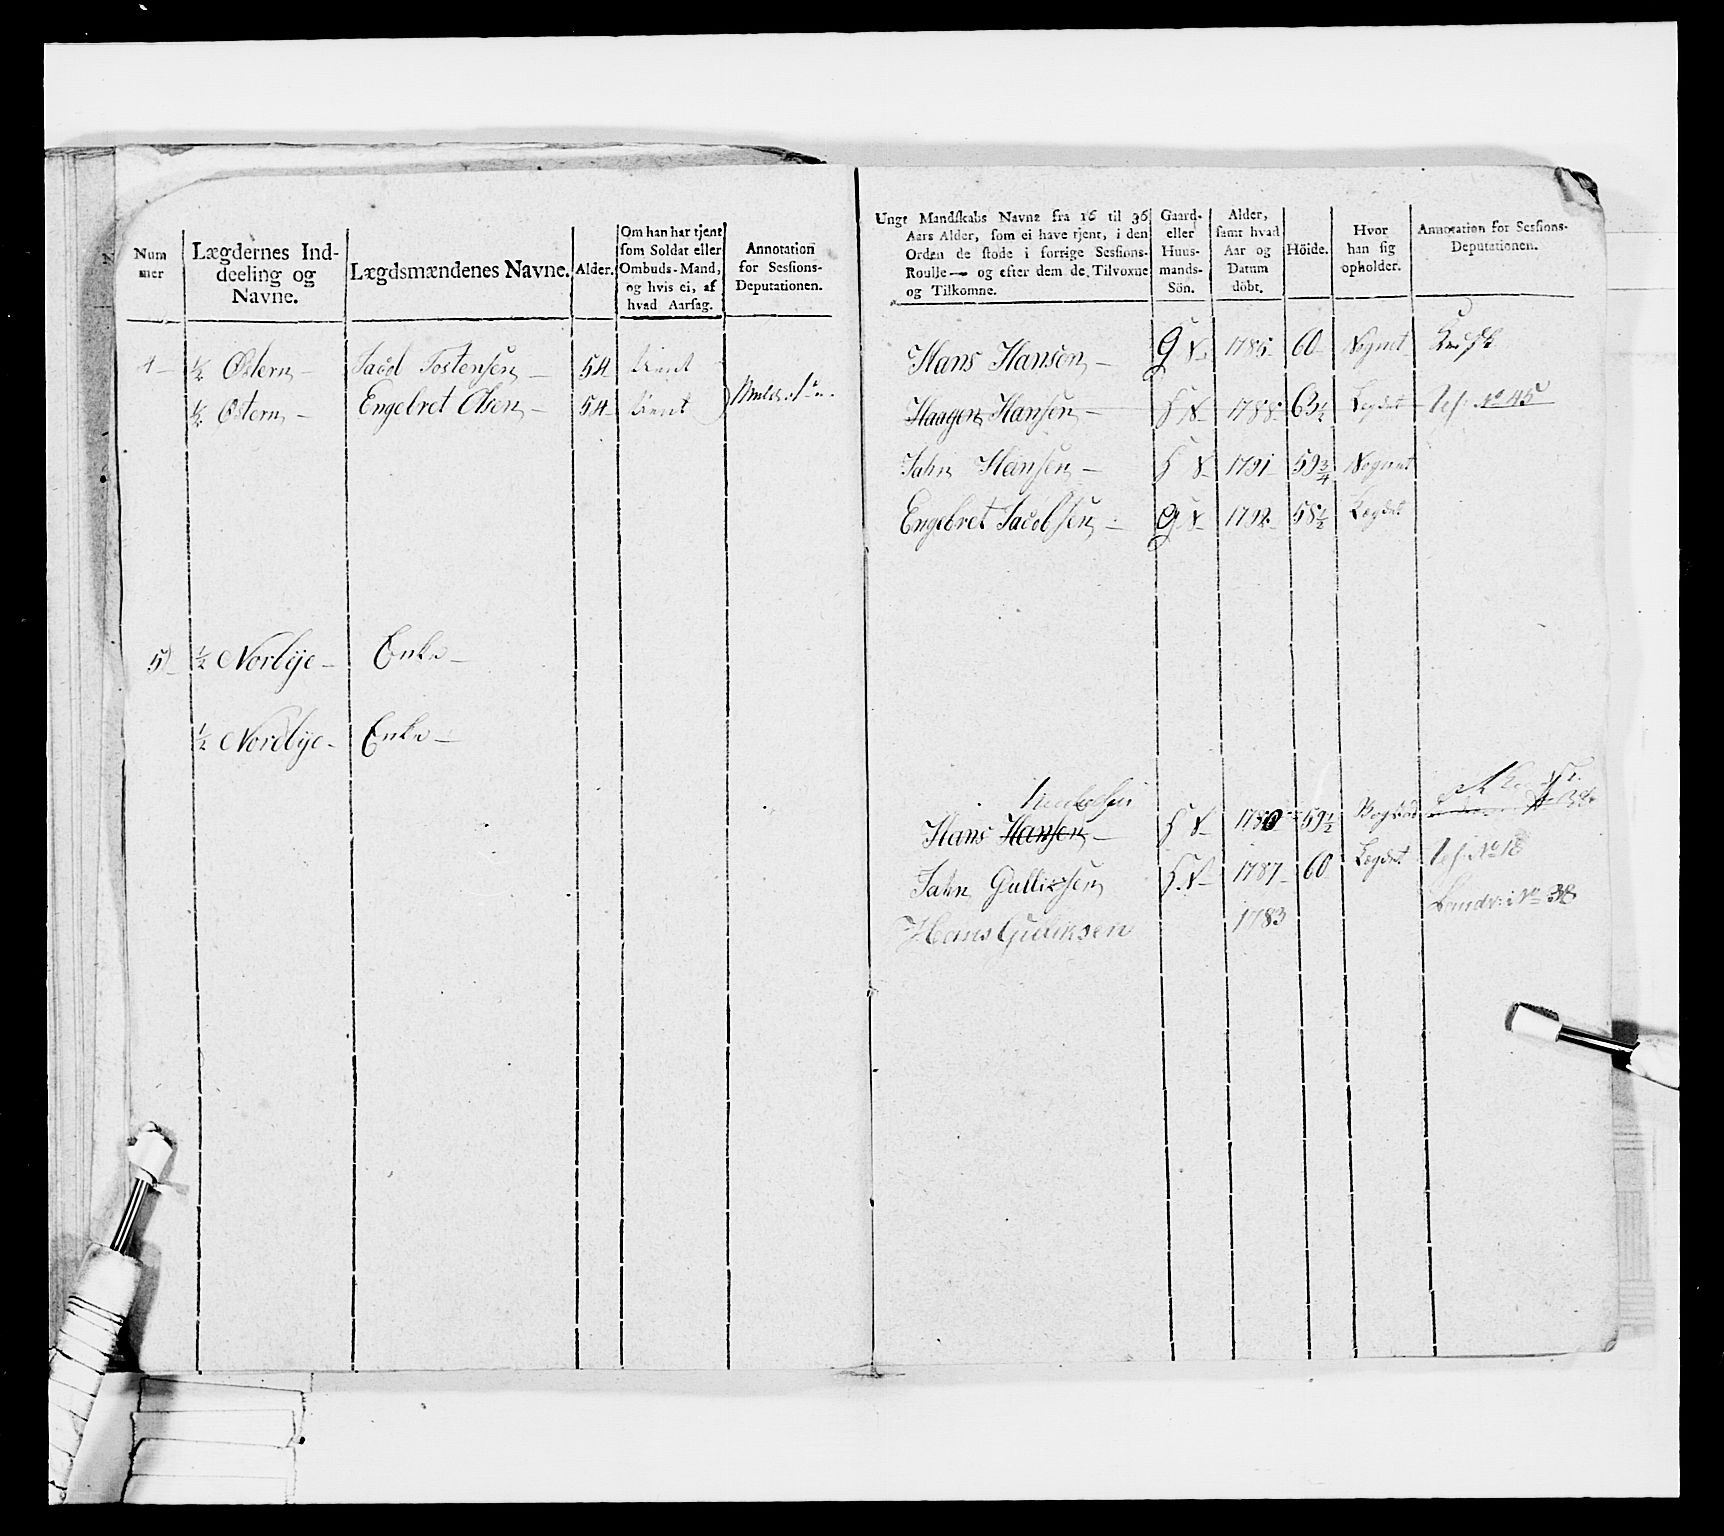 Num
mer
Lægdernes Ind-
deeling og
Navne.
Lægdsmændenes Navne.
Alder.
Om han har tjent
som Soldat eller
Ombuds-Mand,
og hvis ei, af
hvad Aarsag.
Annotation
for Sessions-
Deputationen.
4 ½ Østern Jacob Tostensen 54 tient
½ Østern Engebret Olsen 54 tient
5 ½ Norbye Enke
½ Nordbye Enke
Ungt Mandskabs Navne fra 16 til 36
Aars Alder, som ei have tjent, i den
Orden de stode i forrige Sessions-
Roulle — og efter dem de Tilvoxne
og Tilkomne.
Gaard-
eller
Huus-
mands-
Sön.
Alder,
samt hvad
Aar og
Datum
döbt.
Höide.
Hvor
han sig
opholder.
Annotation for Sessions-
Deputationen.
Hans Hansen G S 1785 60
Haagen Hansen H S 1788 63½ Legdet No 45
Jahn Hansen H S 1791 59¾
Engebret Jacobsen G S 1792 58½ Legdet
Hans Hansen H S 1780 59½
Jahn Gulliksen H S 1787 60 Legdet No 18
Hans Guliksen 1783 Landv: i No 38